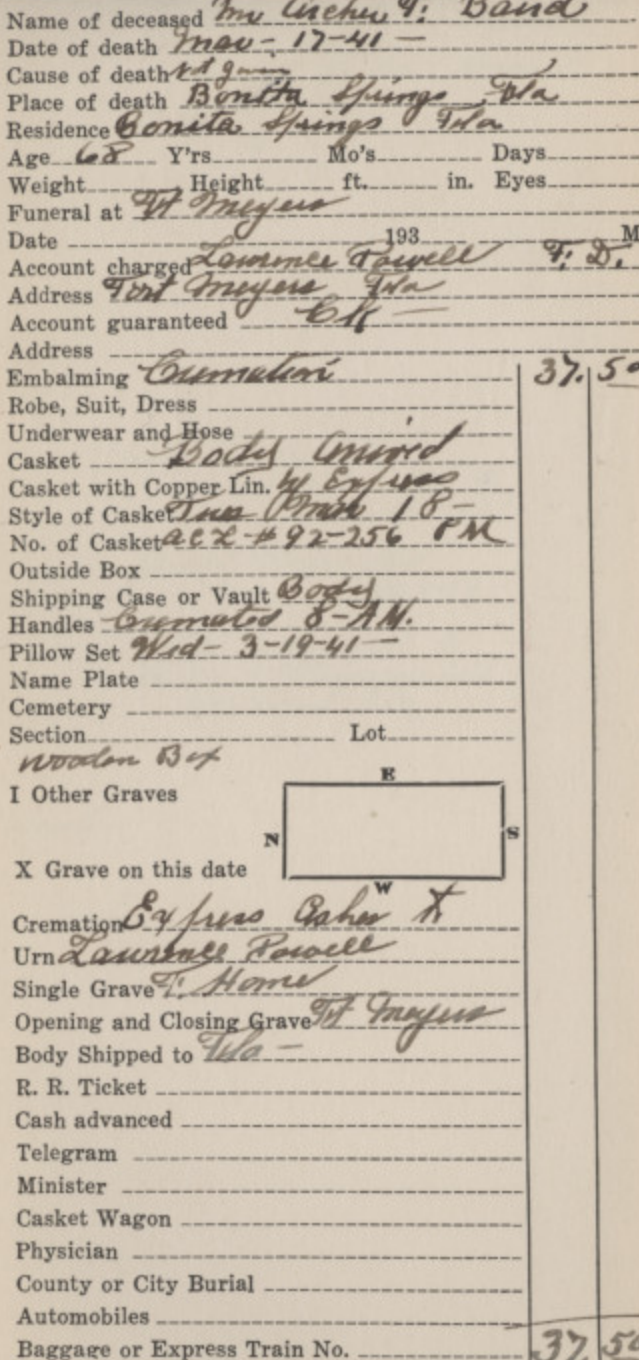 Name of deceased Mr Archer F. Band
Date of death Mar - 17-41 -
Cause of death not given
Place of death Bonita Springs Fla
Residence Bonita Springs Fla
Age 68 Y'rs Mo's Days
Weight Height ft. in. Eyes
Funeral at Ft Meyers
Date 193 M
Account charged Lawrence Powell F. D.
Address Fort Meyers Fla
Account guaranteed OK -
Address
Embalming Cremation 37.50
Robe, Suit, Dress
Underwear and Hose
Casket Body arrived
Casket with Copper Lin. by Express
Style of Casket Tues Mar 18 -
No. of Casket ACL - #92-256 PM
Outside Box
Shipping Case or Vault Body
Handles Cremated 8-AM.
Pillow Set Wed - 3-19-41 -
Name Plate
Cemetery
Section Lot
Wooden Box
E
I Other Graves
N S
X Grave on this date
W
Cremation Express Ashes to
Urn Lawrence Powell
Single Grave F. Home
Opening and Closing Grave Ft Meyers
Body Shipped to Fla -
R. R. Ticket
Cash advanced
Telegram
Minister
Casket Wagon
Physician
County or City Burial
Automobiles
Baggage or Express Train No. 37 50